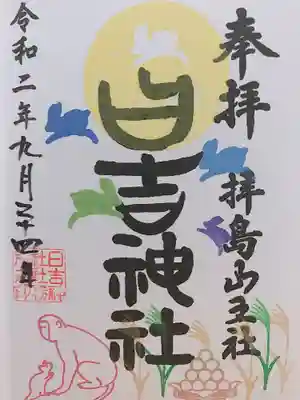 奉拝
拝島山王社
日吉神社
令和二年九月二十四日